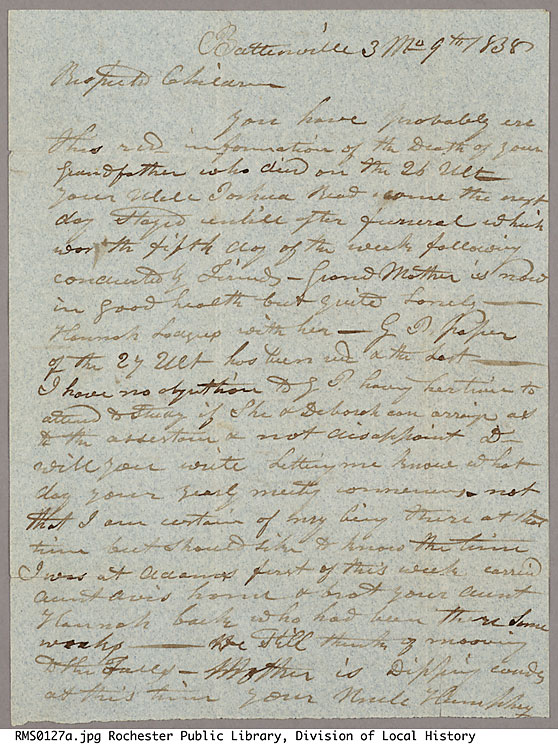 Battenville 3 Mo 9th 1838
Respected Children
You have probably ere
this recd information of the Death of your
Grandfather who died on the 26 Ult
your Uncle Joshua Read came the next
day stayed untill after funeral which
was the fifth day of the week following
conducted by Friends – Grand Mother is now
in good health but quite Lonely —
Hannah Lodges with her — G P. paper
of the 27 Ult has been recd & the Last —
I have no objection to G P. having her time to
attend to Study if She & Deborah can arrange as
to the & not disappoint D–
will you write Letting me know what
day your yearly meeting commences, not
that I am certain of my being there at that
time but should like to know the time
I was at Adams first of this week carried
aunt Avis home & brot your aunt
Hannah back who had been there some
weeks — We Still think of mooving
to the Falls – Mother is Dipping candles
at this time your Uncle Humphry
RMS0127a.jpg Rochester Public Library, Division of Local History